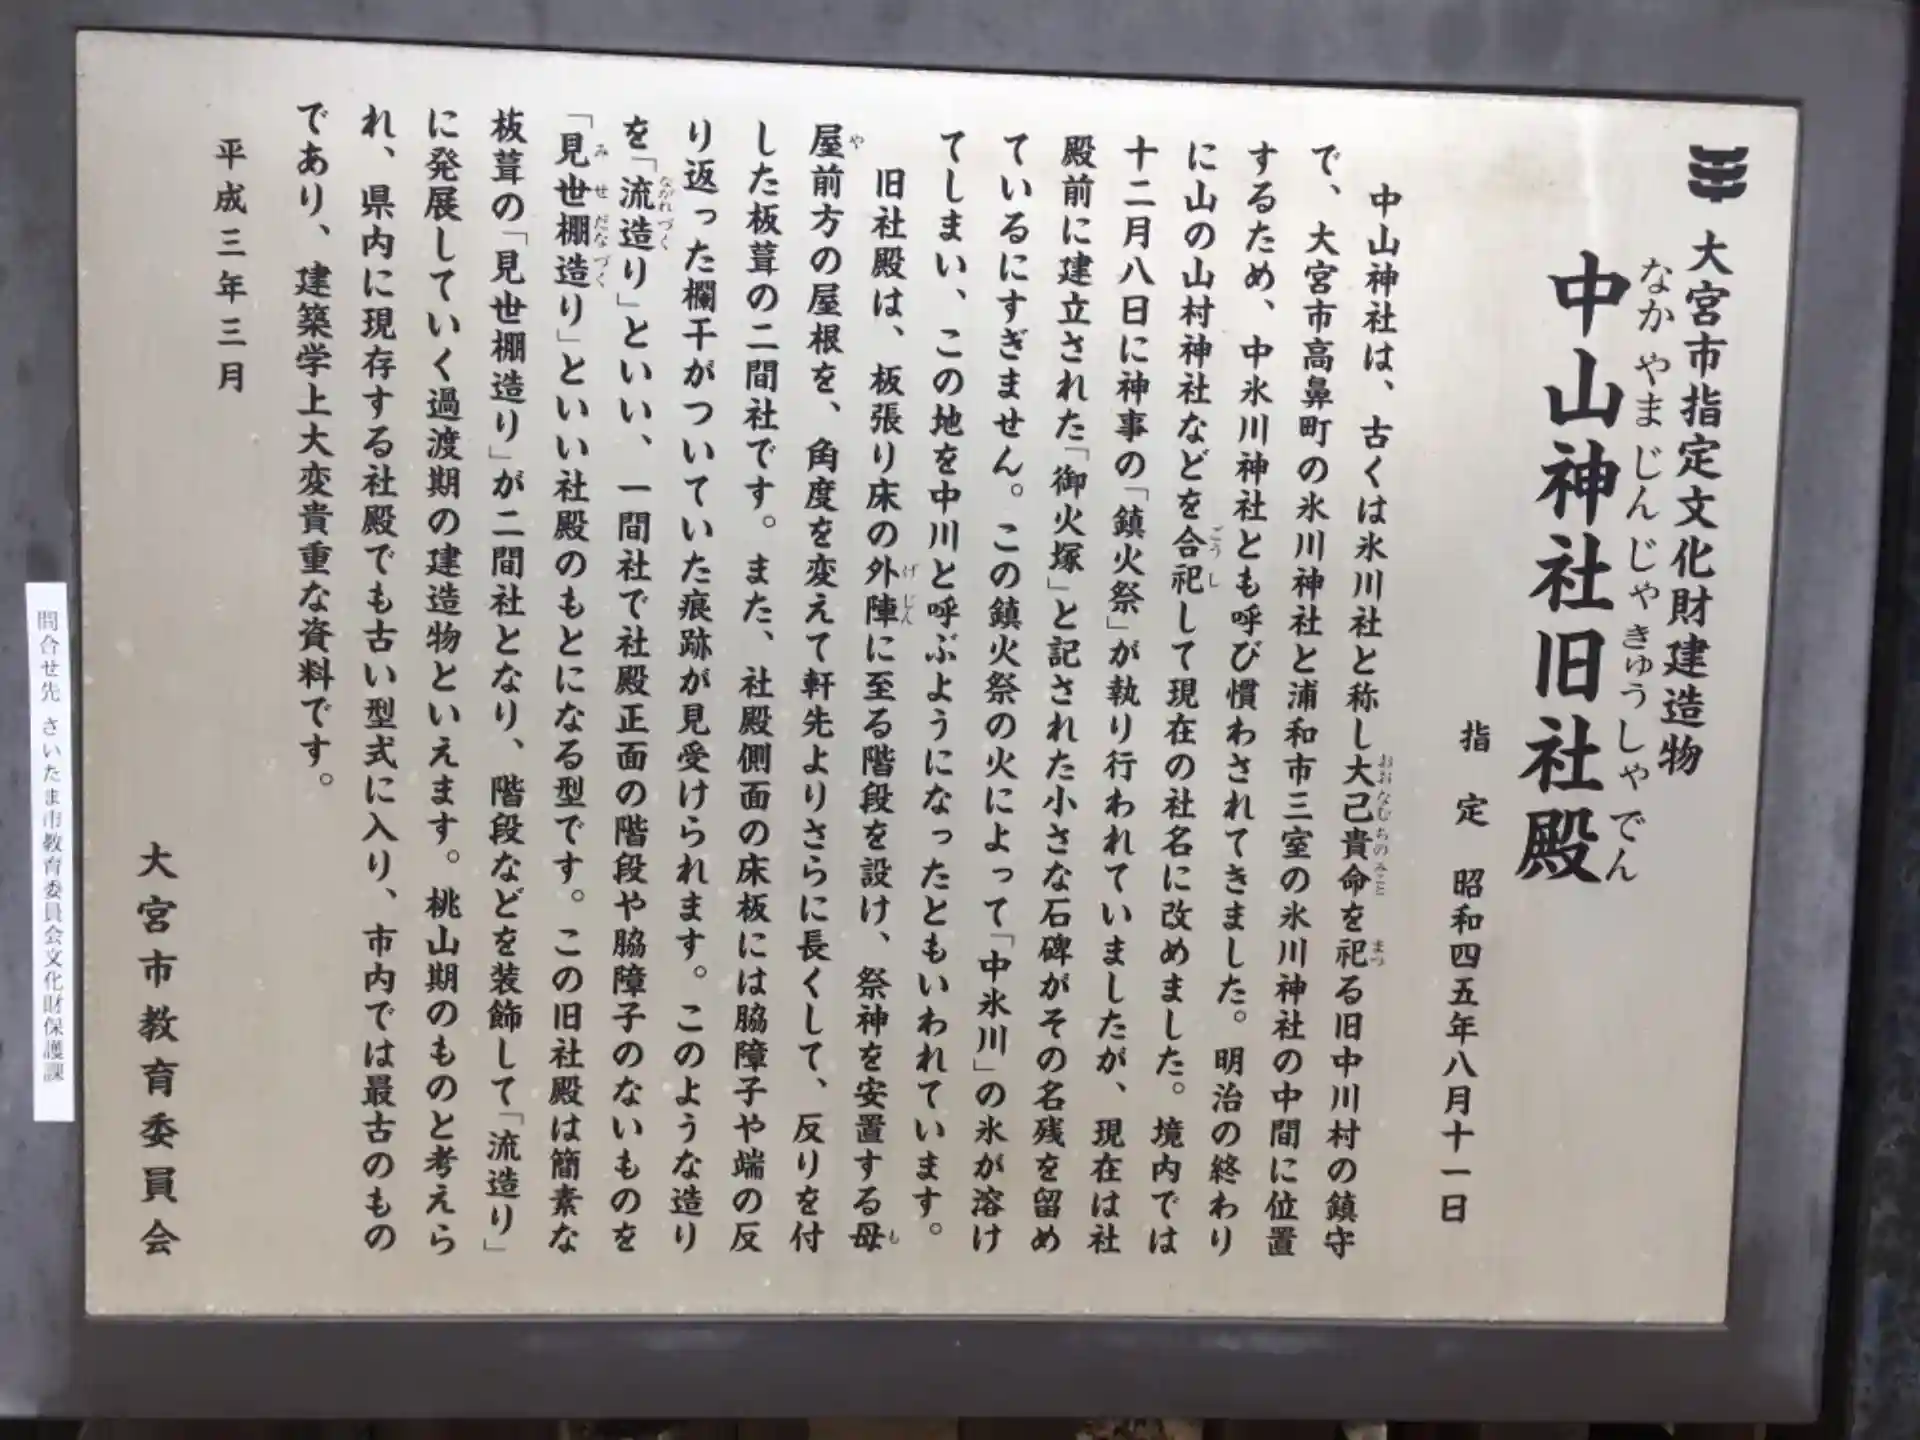 大宮市指定文化財建造物
なかやまじんじゃきゅうしゃでん
中山神社旧社殿
指定 昭和四五年八月十一日
中山神社は、古くは氷川社と称し大己貴命を祀る旧中川村の鎮守
で、大宮市高鼻町の氷川神社と浦和市三室の氷川神社の中間に位置
するため、中氷川神社とも呼び慣わされてきました。明治の終わり
に山の山村神社などを合祀して現在の社名に改めました。境内では
十二月八日に神事の「鎮火祭」が執り行われていましたが、現在は社
殿前に建立された「御火塚」と記された小さな石碑がその名残を留め
ているにすぎません。この鎮火祭の火によって「中氷川」の氷が溶け
てしまい、この地を中川と呼ぶようになったともいわれています。
旧社殿は、板張り床の外陣に至る階段を設け、祭神を安置する母
屋前方の屋根を、角度を変えて軒先よりさらに長くして、反りを付
した板葺の二間社です。また、社殿側面の床板には脇障子や端の反
り返った欄干がついていた痕跡が見受けられます。このような造り
を「流造り」といい、一間社で社殿正面の階段や脇障子のないものを
「見世棚造り」といい社殿のもとになる型です。この旧社殿は簡素な
板葺の「見世棚造り」が二間社となり、階段などを装飾して「流造り」
に発展していく過渡期の建造物といえます。桃山期のものと考えら
れ、県内に現存する社殿でも古い型式に入り、市内では最古のもの
であり、建築学上大変貴重な資料です。
平成三年三月
大宮市教育委員会
問合せ先 さいたま市教育委員会文化財保護課